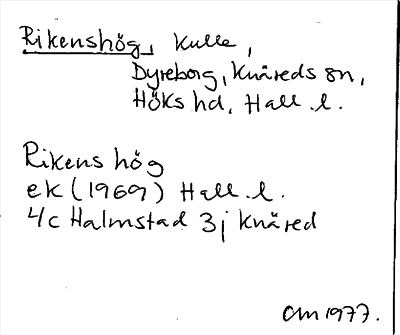 Rikenshög, Kulle,
Dyreborg, Knäreds sn,
Höks hd, Hall. l.
Rikens hög
ek (1969) Hall. l.
4c Halmstad 3j Knäred
OM 1977.